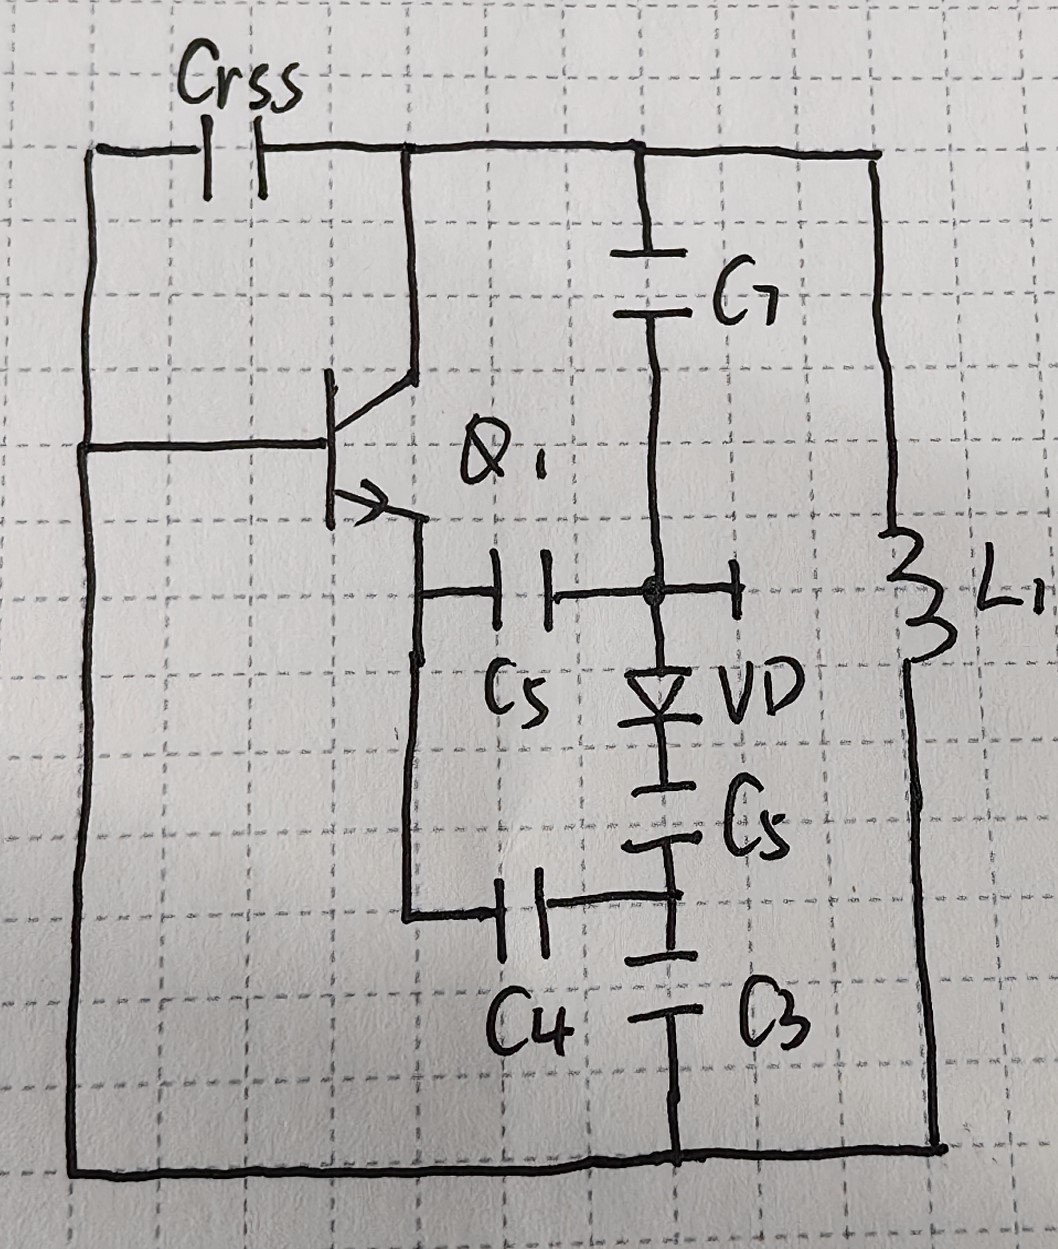 Crss
C7
Q1
L1
C5
VD
C5
C4
C3